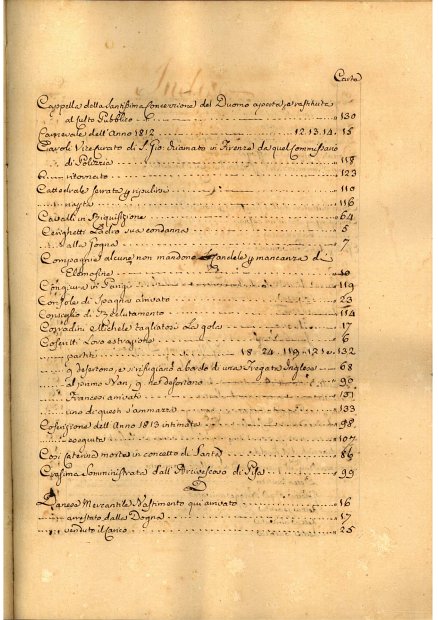 Carte
Cappella della Santissima Concezzione del Duomo aperta, e restituita
al culto Pubblico 130
Carnevale dell'Anno 1812 12. 13. 14. 15
Cavoli Vicecurato di S. Gio: chiamato in Firenze da quel Commissario
di Polizzia 118
ritornato 123
Cattedrale serrata p ripulire 110
116
Cavalli in Riquisizione 64
Cerighetti Ladro sua condanna 5
alla Gogna 7
Compagnie alcune non mandono Candele p mancanza di
Elemosine 40
Congiura in Parigi 119
Console di Spagna arrivato 23
Consiglio di Reclutamento 114
Corradini Michele tagliatosi la gola 17
Coscritti Loro estrazione 6
partiti 18. 24. 119. 121. e 132
9 desertono, e si rifugiano a bordo di una Fregata Inglese 68
al primo Nan, 9 ne desertono 90
Francesi arrivati 131
uno di questi s'ammazza 133
Coscrizione dell'Anno 1813 intimata 98
eseguita 107
Cosi Caterina morta in concetto di Santa 86
Cresima Somministrata dall'Arcivescovo di Pisa 99
Danese Mercantile Bastimento qui arrivato 16
arrestato dalla Dogna 17
venduto il carico 25